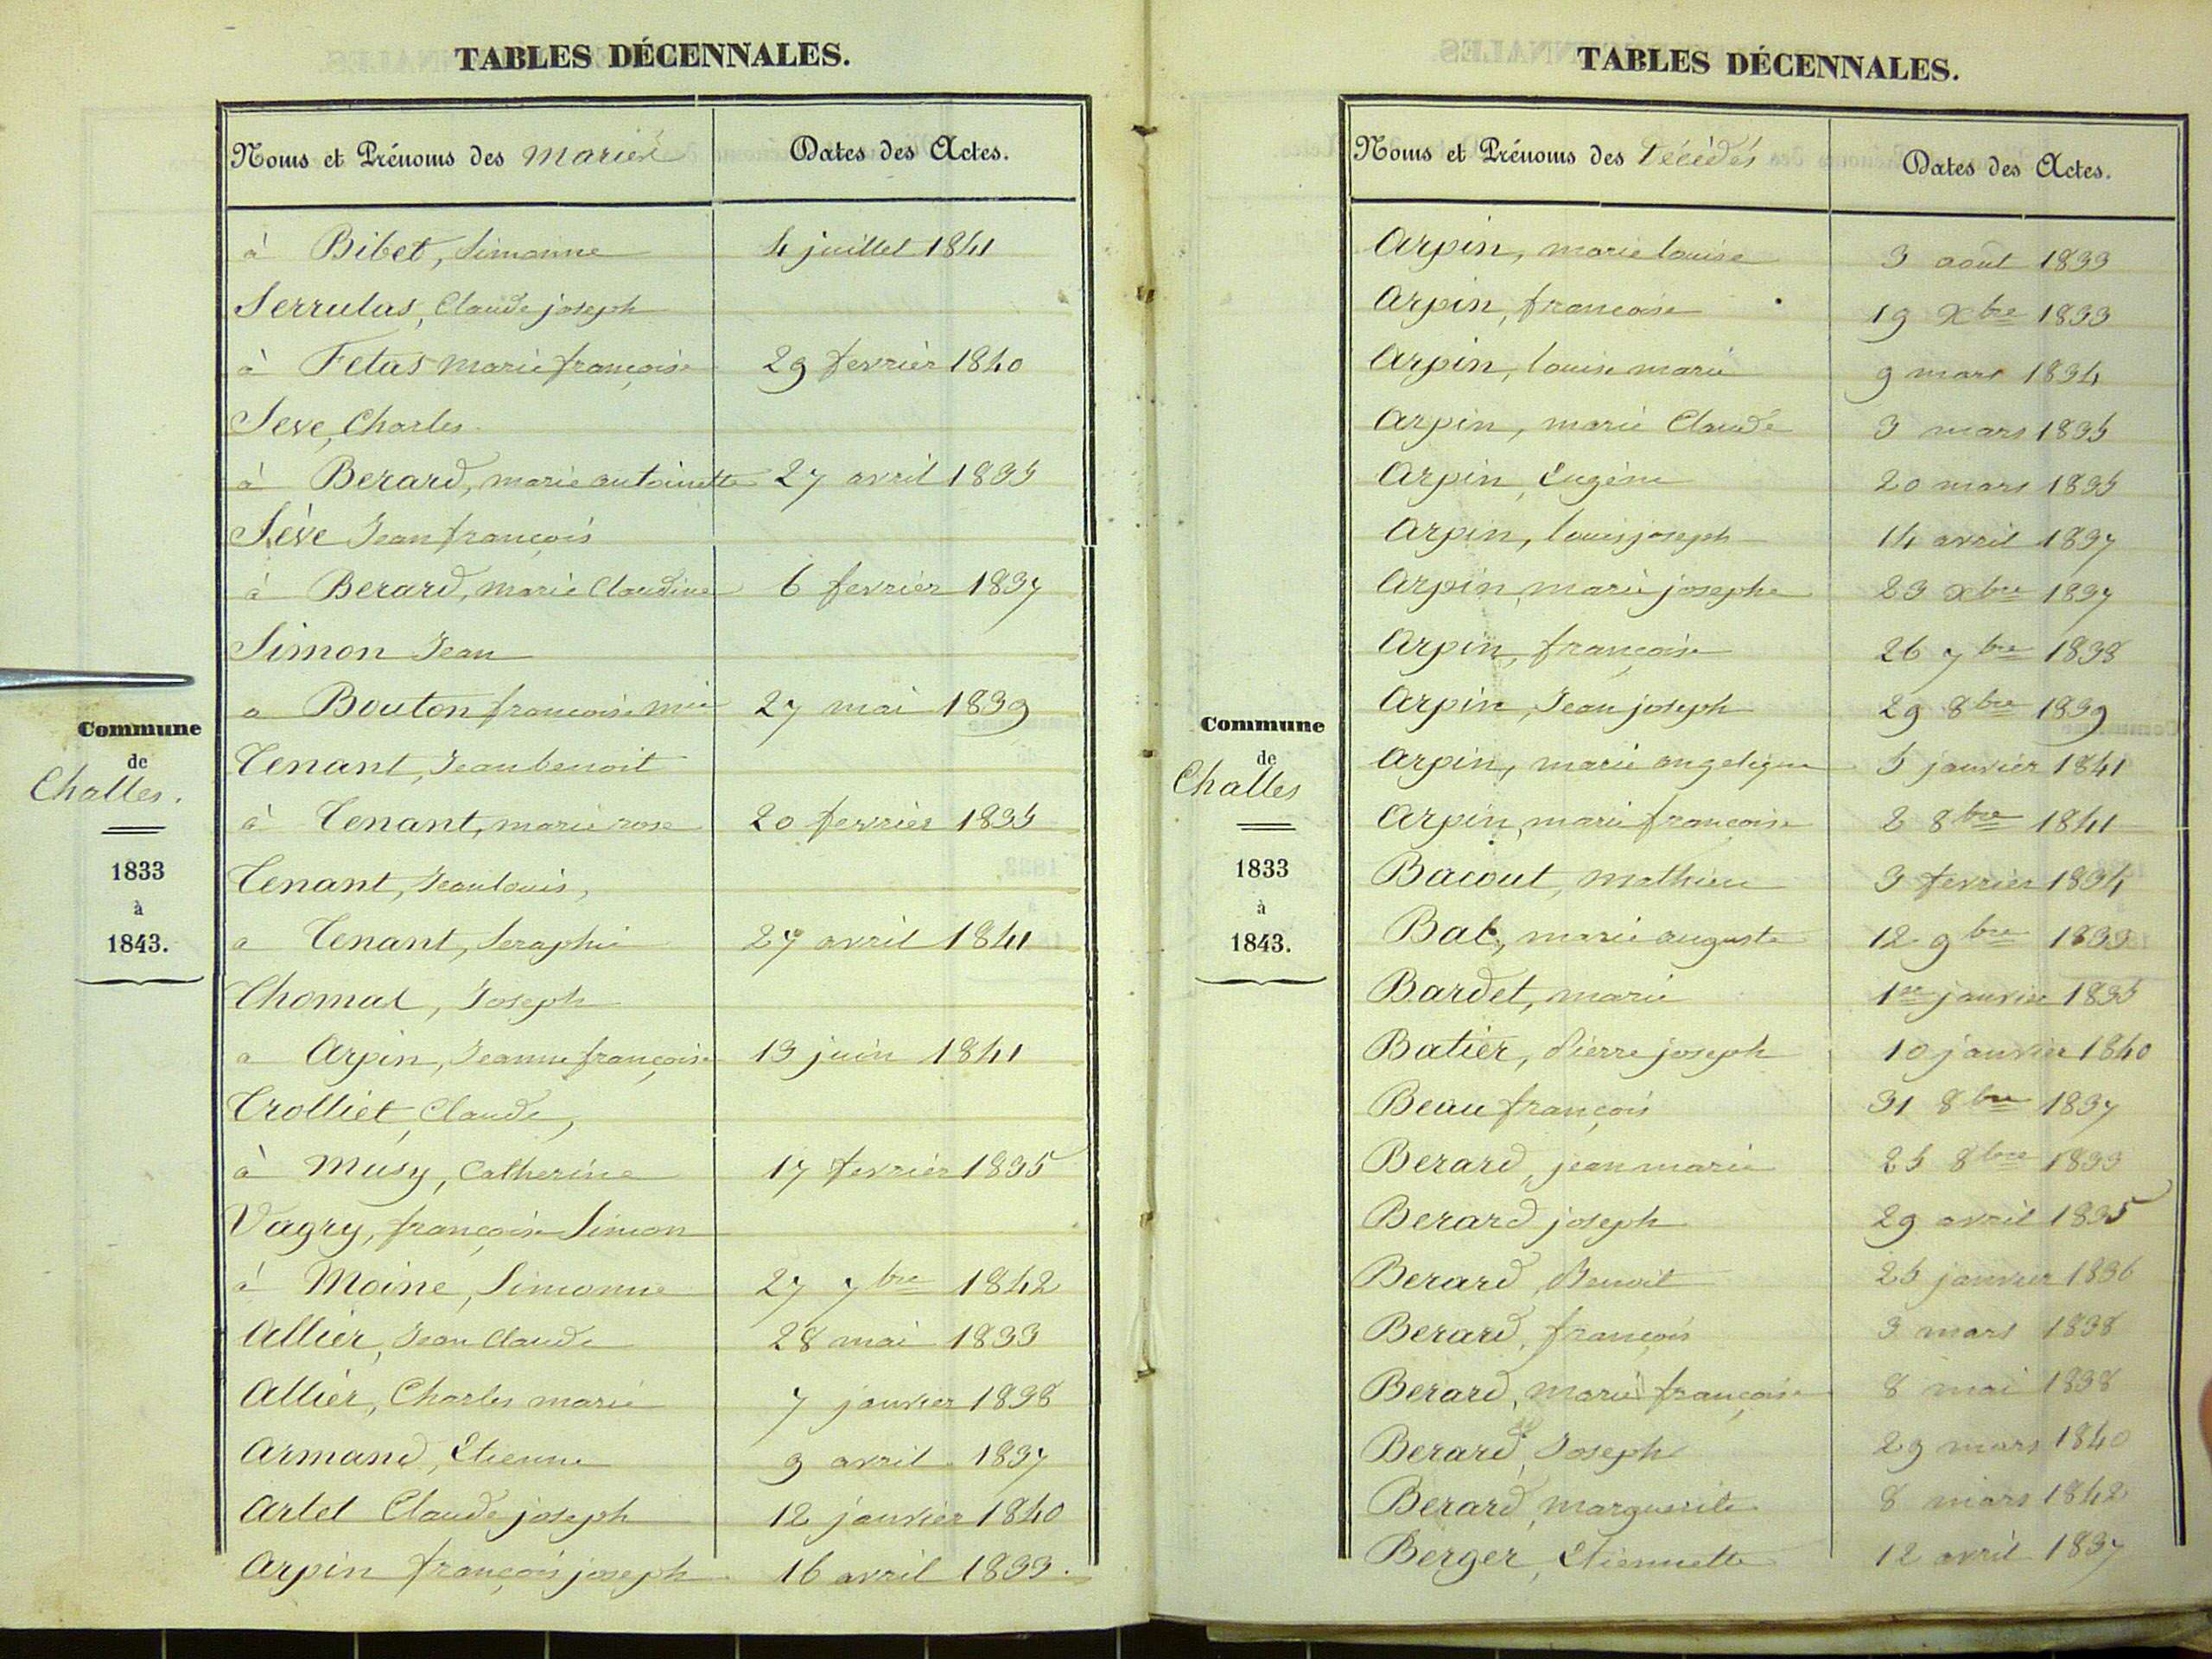 TABLES DÉCENNALES.
Noms et Prénoms des mariés
Dates des Actes.
à Bibet, Simonne 4 juillet 1841
Serrulas, Claude joseph
à Fetas marie françoise 29 fevrier 1840
Seve, Charles
à Berard, marie antoinette 27 avril 1835
Sève Jean françois
à Berard, marie Claudine 6 fevrier 1837
Simon Jean
a Bouton francoise mie 27 mai 1839
Tenant, Jean benoit
à Tenant, marie rose 20 fevrier 1835
Tenant, Jean louis,
a Tenant, Seraphie 27 avril 1841
Thomas, Joseph
a Arpin, Jeanne françoise 13 juin 1841
Trolliet, Claude,
à Musy, Catherine 17 fevrier 1835
Vagry, françois Simon
à Moine, Simonne 27 7bre 1842
Allier, Jean Claude 28 mai 1833
Allier, Charles marie 7 janvier 1838
Armand, Etienne 9 avril 1837
Artel Claude joseph 12 janvier 1840
Arpin françois joseph 16 avril 1833.
Commune
de
Challes.
1833
à
1843.
TABLES DÉCENNALES.
Noms et Prénoms des Décédés
Dates des Actes.
Arpin, marie louise 3 août 1833
Arpin, francoise 19 Xbre 1833
Arpin, louise marie 9 mars 1834
Arpin, marie Claude 3 mars 1835
Arpin, Eugénie 20 mars 1835
Arpin, louis joseph 14 avril 1837
Arpin, marie josephe 23 xbre 1837
Arpin, françoise 26 7bre 1838
Arpin, Jean joseph 29 8bre 1839
Arpin, marie angelique 5 janvier 1841
Arpin, marie françoise 2 8bre 1841
Bacout, mathieu 3 fevrier 1834
Bal, marie auguste 12 9bre 1833
Bardet, marie 1er janvier 1835
Batier, Pierre joseph 10 janvier 1840
Beau françois 31 8bre 1837
Berard, jean marie 25 8bre 1833
Berard joseph 29 avril 1835
Berard, Benoit 25 janvier 1836
Berard, françois 3 mars 1838
Berard, marie françoise 8 mai 1838
Berard, Joseph 29 mars 1840
Berard, marguerite 8 mars 1842
Berger, Etiennette 12 avril 1837
Commune
de
Challes
1833
à
1843.